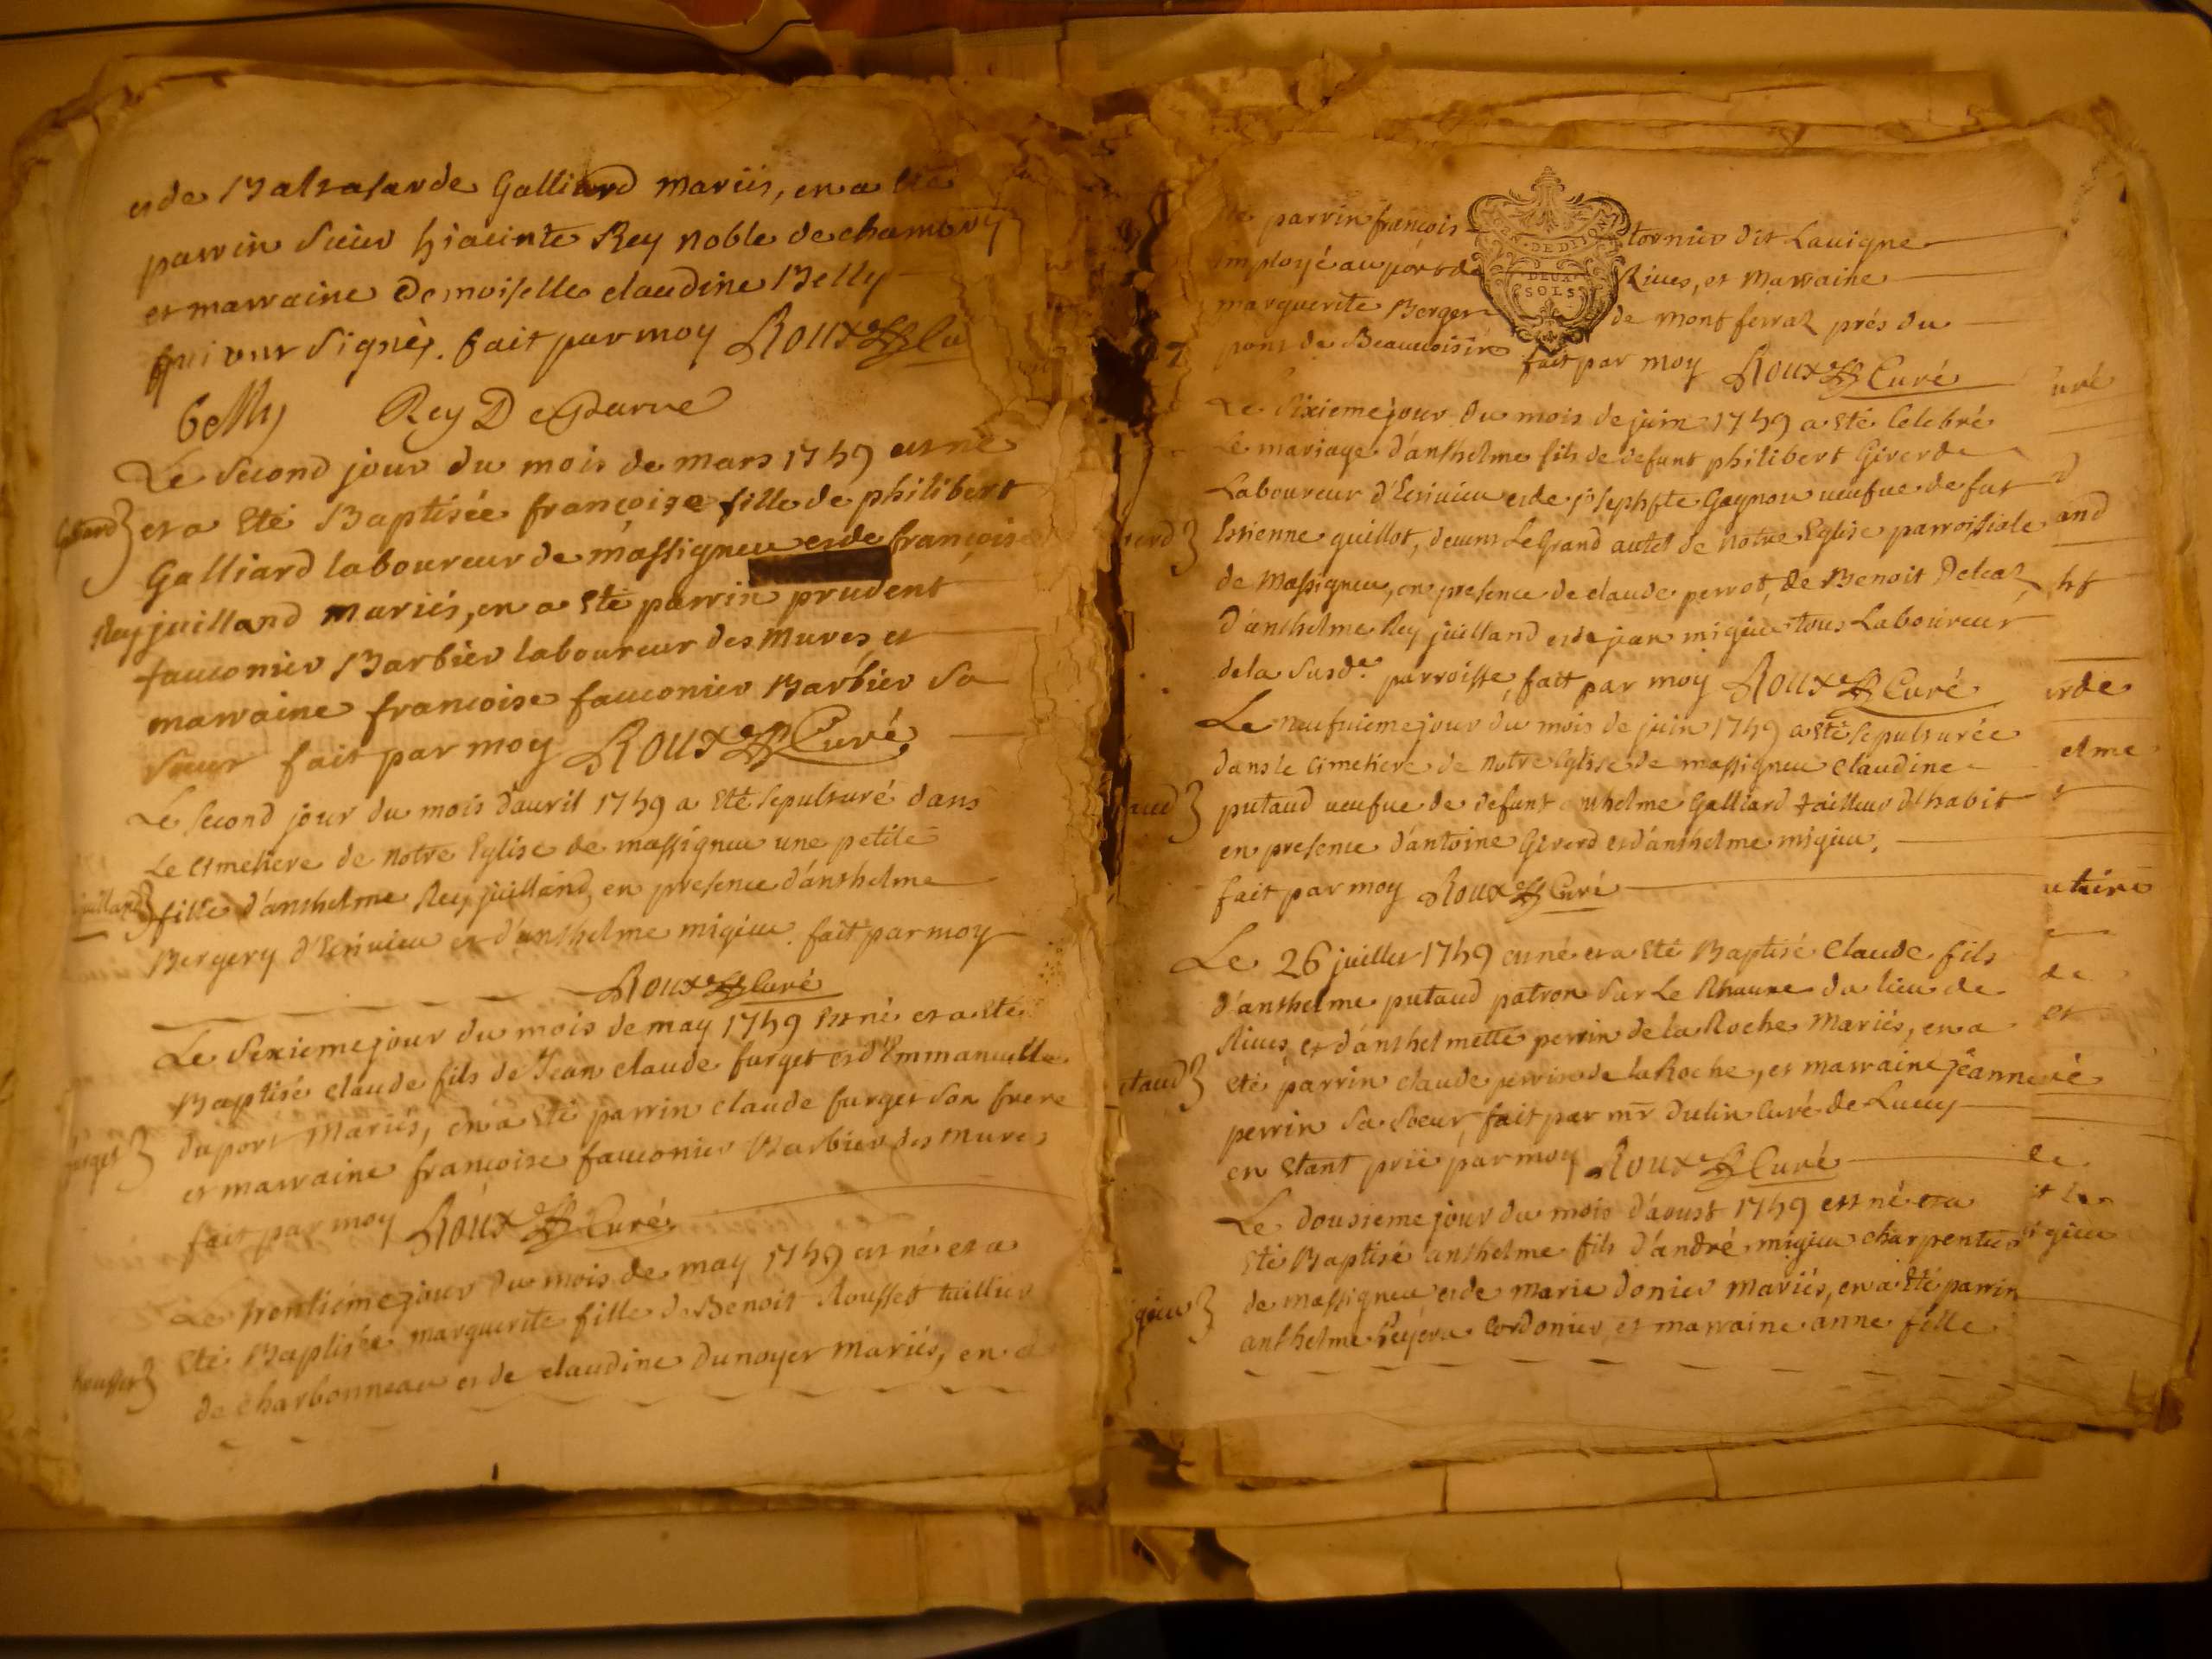 et de Baltasarde Galliard mariés, en a été
parrin sieur hiacinte Rey noble de chambery
et marraine Demoiselle claudine Belly
qui ont signés. fait par moy Roux Cu
belly Rey D
Le second jour du mois de mars 1749 est né
et a été Baptisée françoise fille de philibert
Galliard laboureur de massignieu et de françoise
Rey juilland mariés, en a été parrin prudent
fauconier Barbier laboureur des Mures, et
marraine françoise fauconier Barbier sa
sœur fait par moy Roux Curé
Le second jour du mois d'avril 1749 a été sepulturé dans
Le cimetiere de notre Eglise de massigneu une petite
juilland fille d'anthelme Rey juilland, en presence d'anthelme
Bergery d'Ecrivieu et d'anthelme migieu. fait par moy
Roux Curé
Le sixieme jour du mois de may 1749 est né et a été
Baptisé claude fils de Jean claude furget et d'Emmanuelle
furget duport mariés, en a été parrin claude furget son frere
et marraine françoise fauconier Barbier des mures
fait par moy Roux Curé
Le trentiéme jour du mois de may 1749 est né et a
été Baptisée marguerite fille de Benoit Rousset taillieur
Rousset de charbonneau et de claudine dunoyer mariés, en a
été parrin françois tornier dit Lavigne
employé au port de Rives, et Marraine
marguerite Berger de montferraz prés du
pont de Beauvoisin fait par moy Roux Curé
GEN. DE DIJON
DEUX
SOLS
Le sixieme jour du mois de juin 1749 a été Celebré
Le mariage d'anthelme fils de defunt philibert Giverde
Laboureur d'Ecrivieu et de josephte Gagnon veufve de fut
Estienne guillot, devent Le Grand autel de notre Eglise parroissiale
de Massigneu, en presence de claude perrot, de Benoit Delcaz
d'anthelme Rey juilland et de jean migieu tous Laboureur
de la susd.e parroisse, fait par moy Roux Curé
Le neufvieme jour du mois de juin 1749 a été sepulturée
dans le cimetiere de notre Eglise de massigneu claudine
putaud veufve de defunt anthelme Galliard tailleur d'habit
en presence d'antoine Giverd et d'anthelme migieu.
fait par moy Roux Curé
Le 26 juillet 1749 est né et a été Baptisé Claude fils
d'anthelme putaud patron sur Le Rhaune du lieu de
Rives et d'anthelmette perrin de la Roche Mariés, en a
été parrin claude perrin de la Roche, et marraine jeanne
perrin sa soeur, fait par mr dulin Curé de Lucey
en étant prié par moy Roux Curé
Le dousieme jour du mois d'aoust 1749 est né et a
été Baptisé anthelme fils d'andré migieu charpentier
de massigneu et de marie donier mariés, en a été parrin
anthelme Reyera cordonier, et marraine anne fille
uré
and
ht
erde
elme
de
et
ré